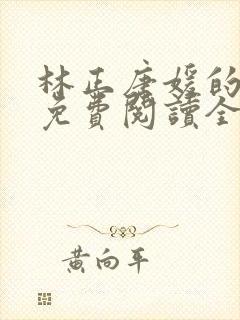 林正唐媛的
免費閱讀全
黃向平